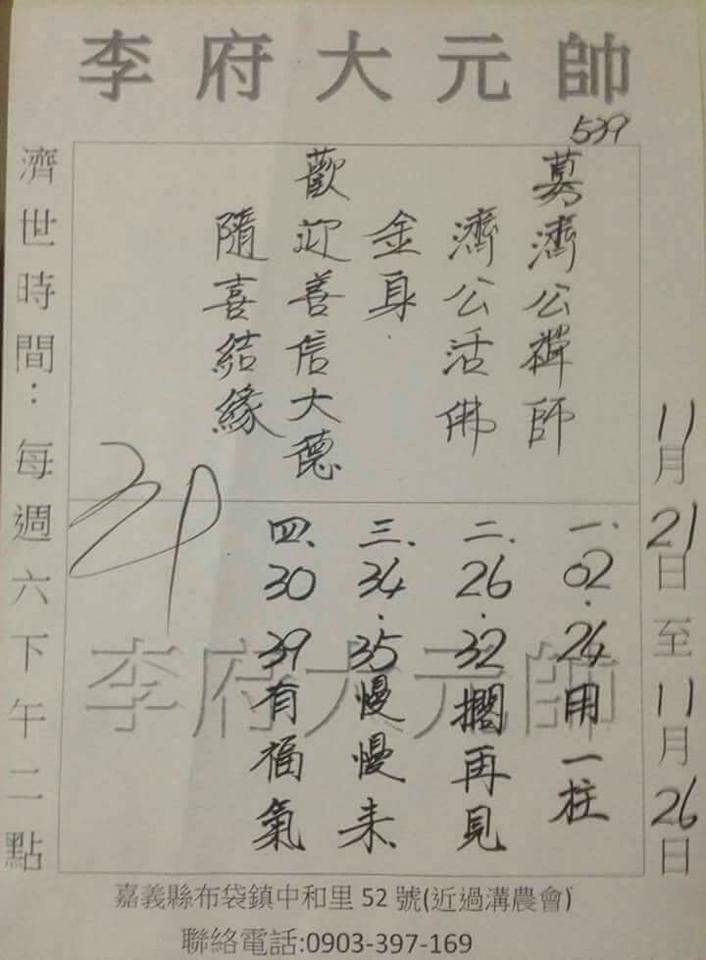 李府大元帥
539
募濟公禪師
濟公活佛
金身
歡迎善信大德
隨喜結緣
11月21日至11月26日
一、02.24用一柱
二、26.32擱再見
三、34.35慢慢来
四、30 39有福氣
李府大元帥
濟世時間：每週六下午二點
嘉義縣布袋鎮中和里52號(近過溝農會)
聯絡電話:0903-397-169